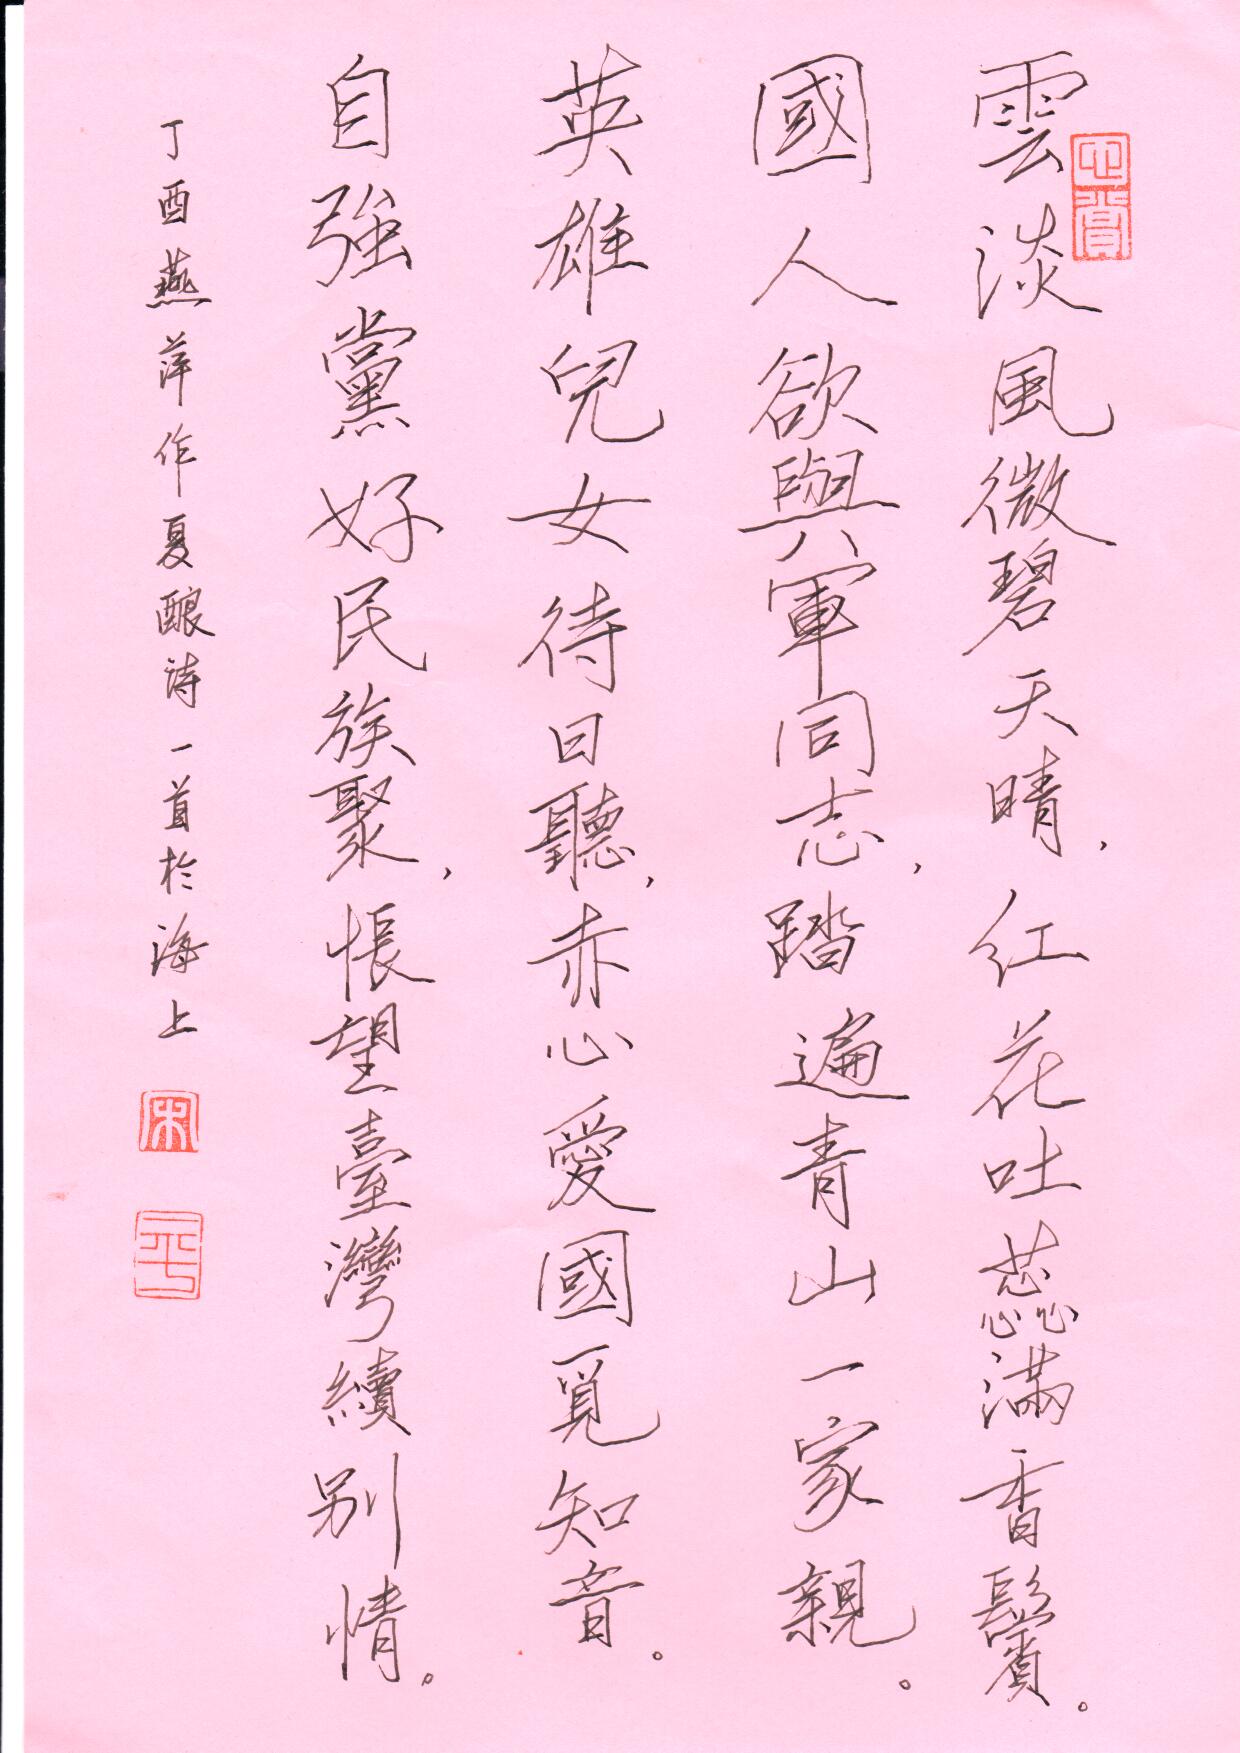 雲淡風微碧天晴，紅花吐蕊滿香鬢。
國人欲與軍同志，踏遍青山一家親。
英雄兒女待日聽，赤心愛國覓知音。
自強黨好民族聚，悵望臺灣續別情。
丁酉燕萍作夏酿詩一首於海上